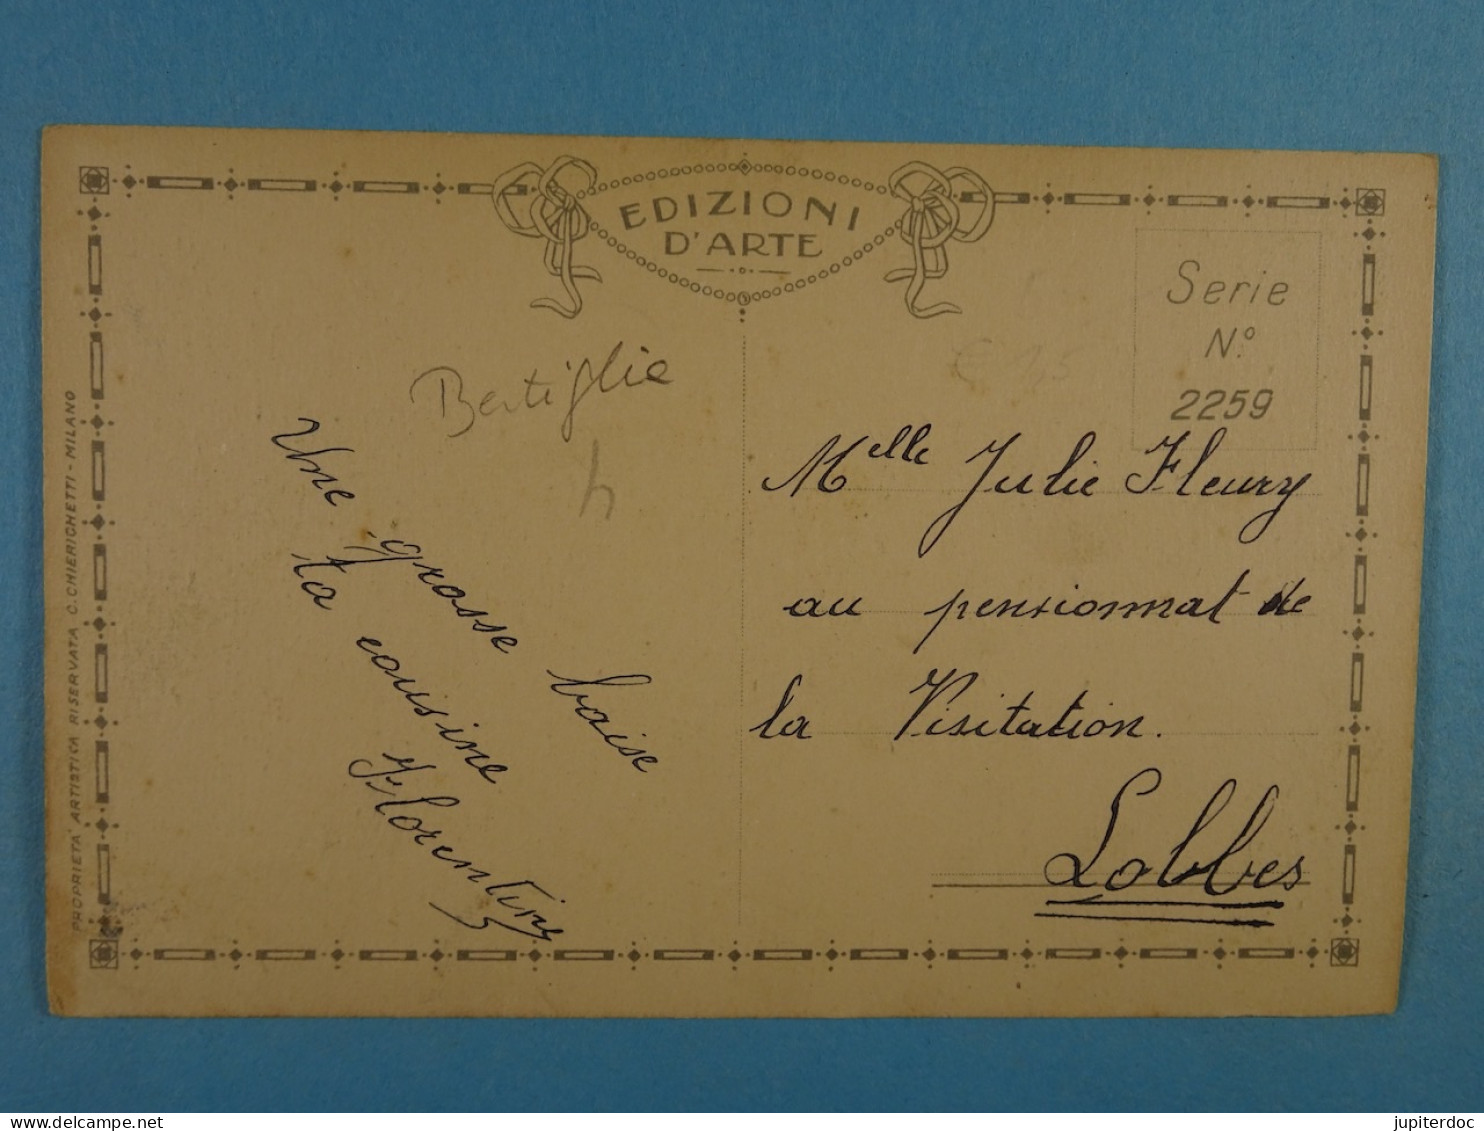 EDIZIONI
D'ARTE
Serie
N.º
2259
Bertiglia
h
Une grosse baise
ta cousine
Florentine
Melle Julie Fleury
au pensionnat de
la Visitation.
Lobbes
PROPRIETA' ARTISTICA RISERVATA C. CHIERICHETTI - MILANO
jupiterdoc